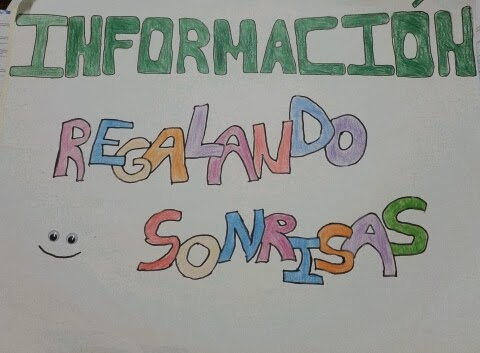 INFORMACIÓN
REGALANDO
SONRISAS